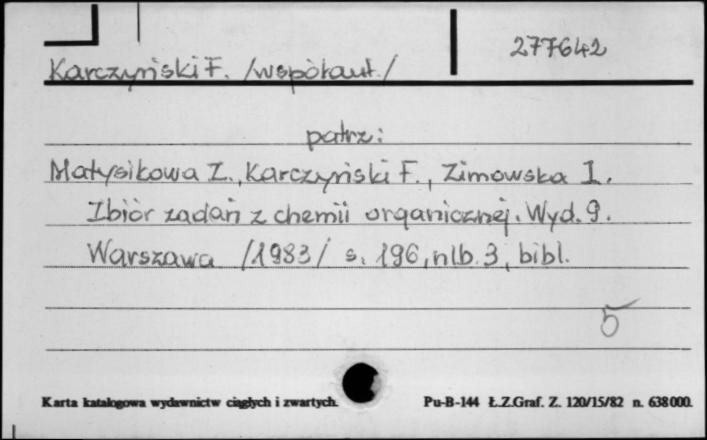 277642
Karczyński F. /współaut./
patrz:
Małysikowa Z., Karczyński F., Zimowska I.
Zbiór zadań z chemii organicznej. Wyd. 9.
Warszawa /1983/ s. 196, nlb. 3, bibl.
5
Karta katalogowa wydawnictw ciągłych i zwartych. Pu-B-144 Ł.Z.Graf. Z. 120/15/82 n. 638000.